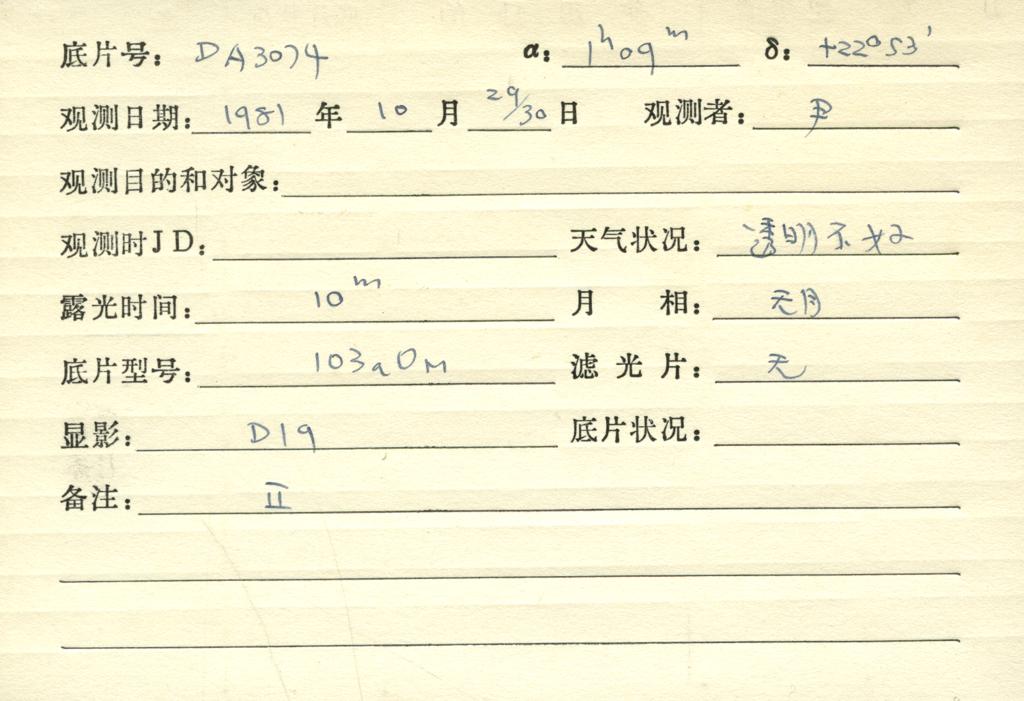 底片号: DA3074 α: 1ʰ09ᵐ δ: +22°53′
观测日期: 1981 年 10 月 29/30 日 观测者:
观测目的和对象:
观测时JD: 天气状况: 透明不好
露光时间: 10ᵐ 月 相: 无月
底片型号: 103aOM 滤光片: 无
显影: D19 底片状况:
备注: II